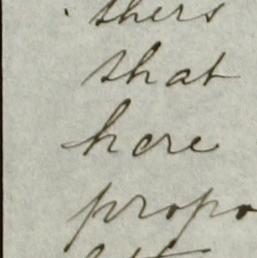 thers
that
here
propo